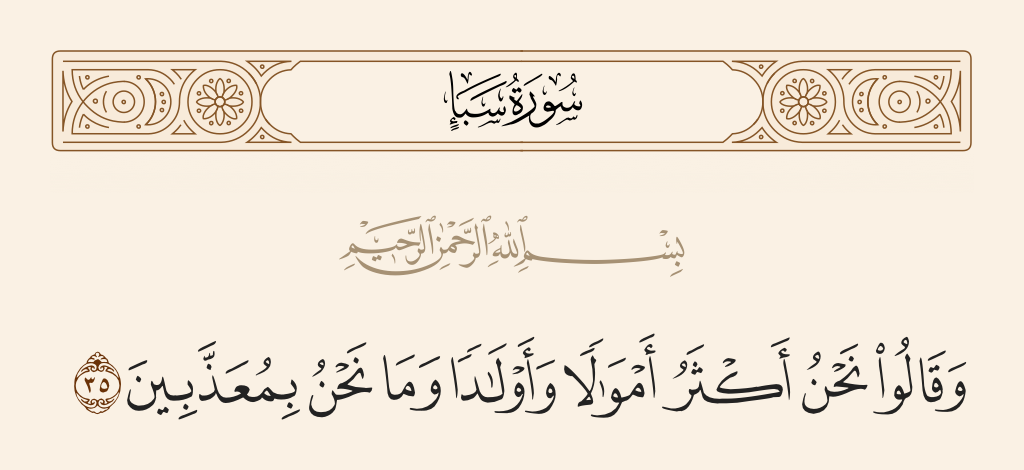 سُورَةُ سَبَإٍ
بِسْمِ ٱللَّهِ ٱلرَّحْمَٰنِ ٱلرَّحِيمِ
وَقَالُوا۟ نَحْنُ أَكْثَرُ أَمْوَٰلًا وَأَوْلَٰدًا وَمَا نَحْنُ بِمُعَذَّبِينَ ٣٥